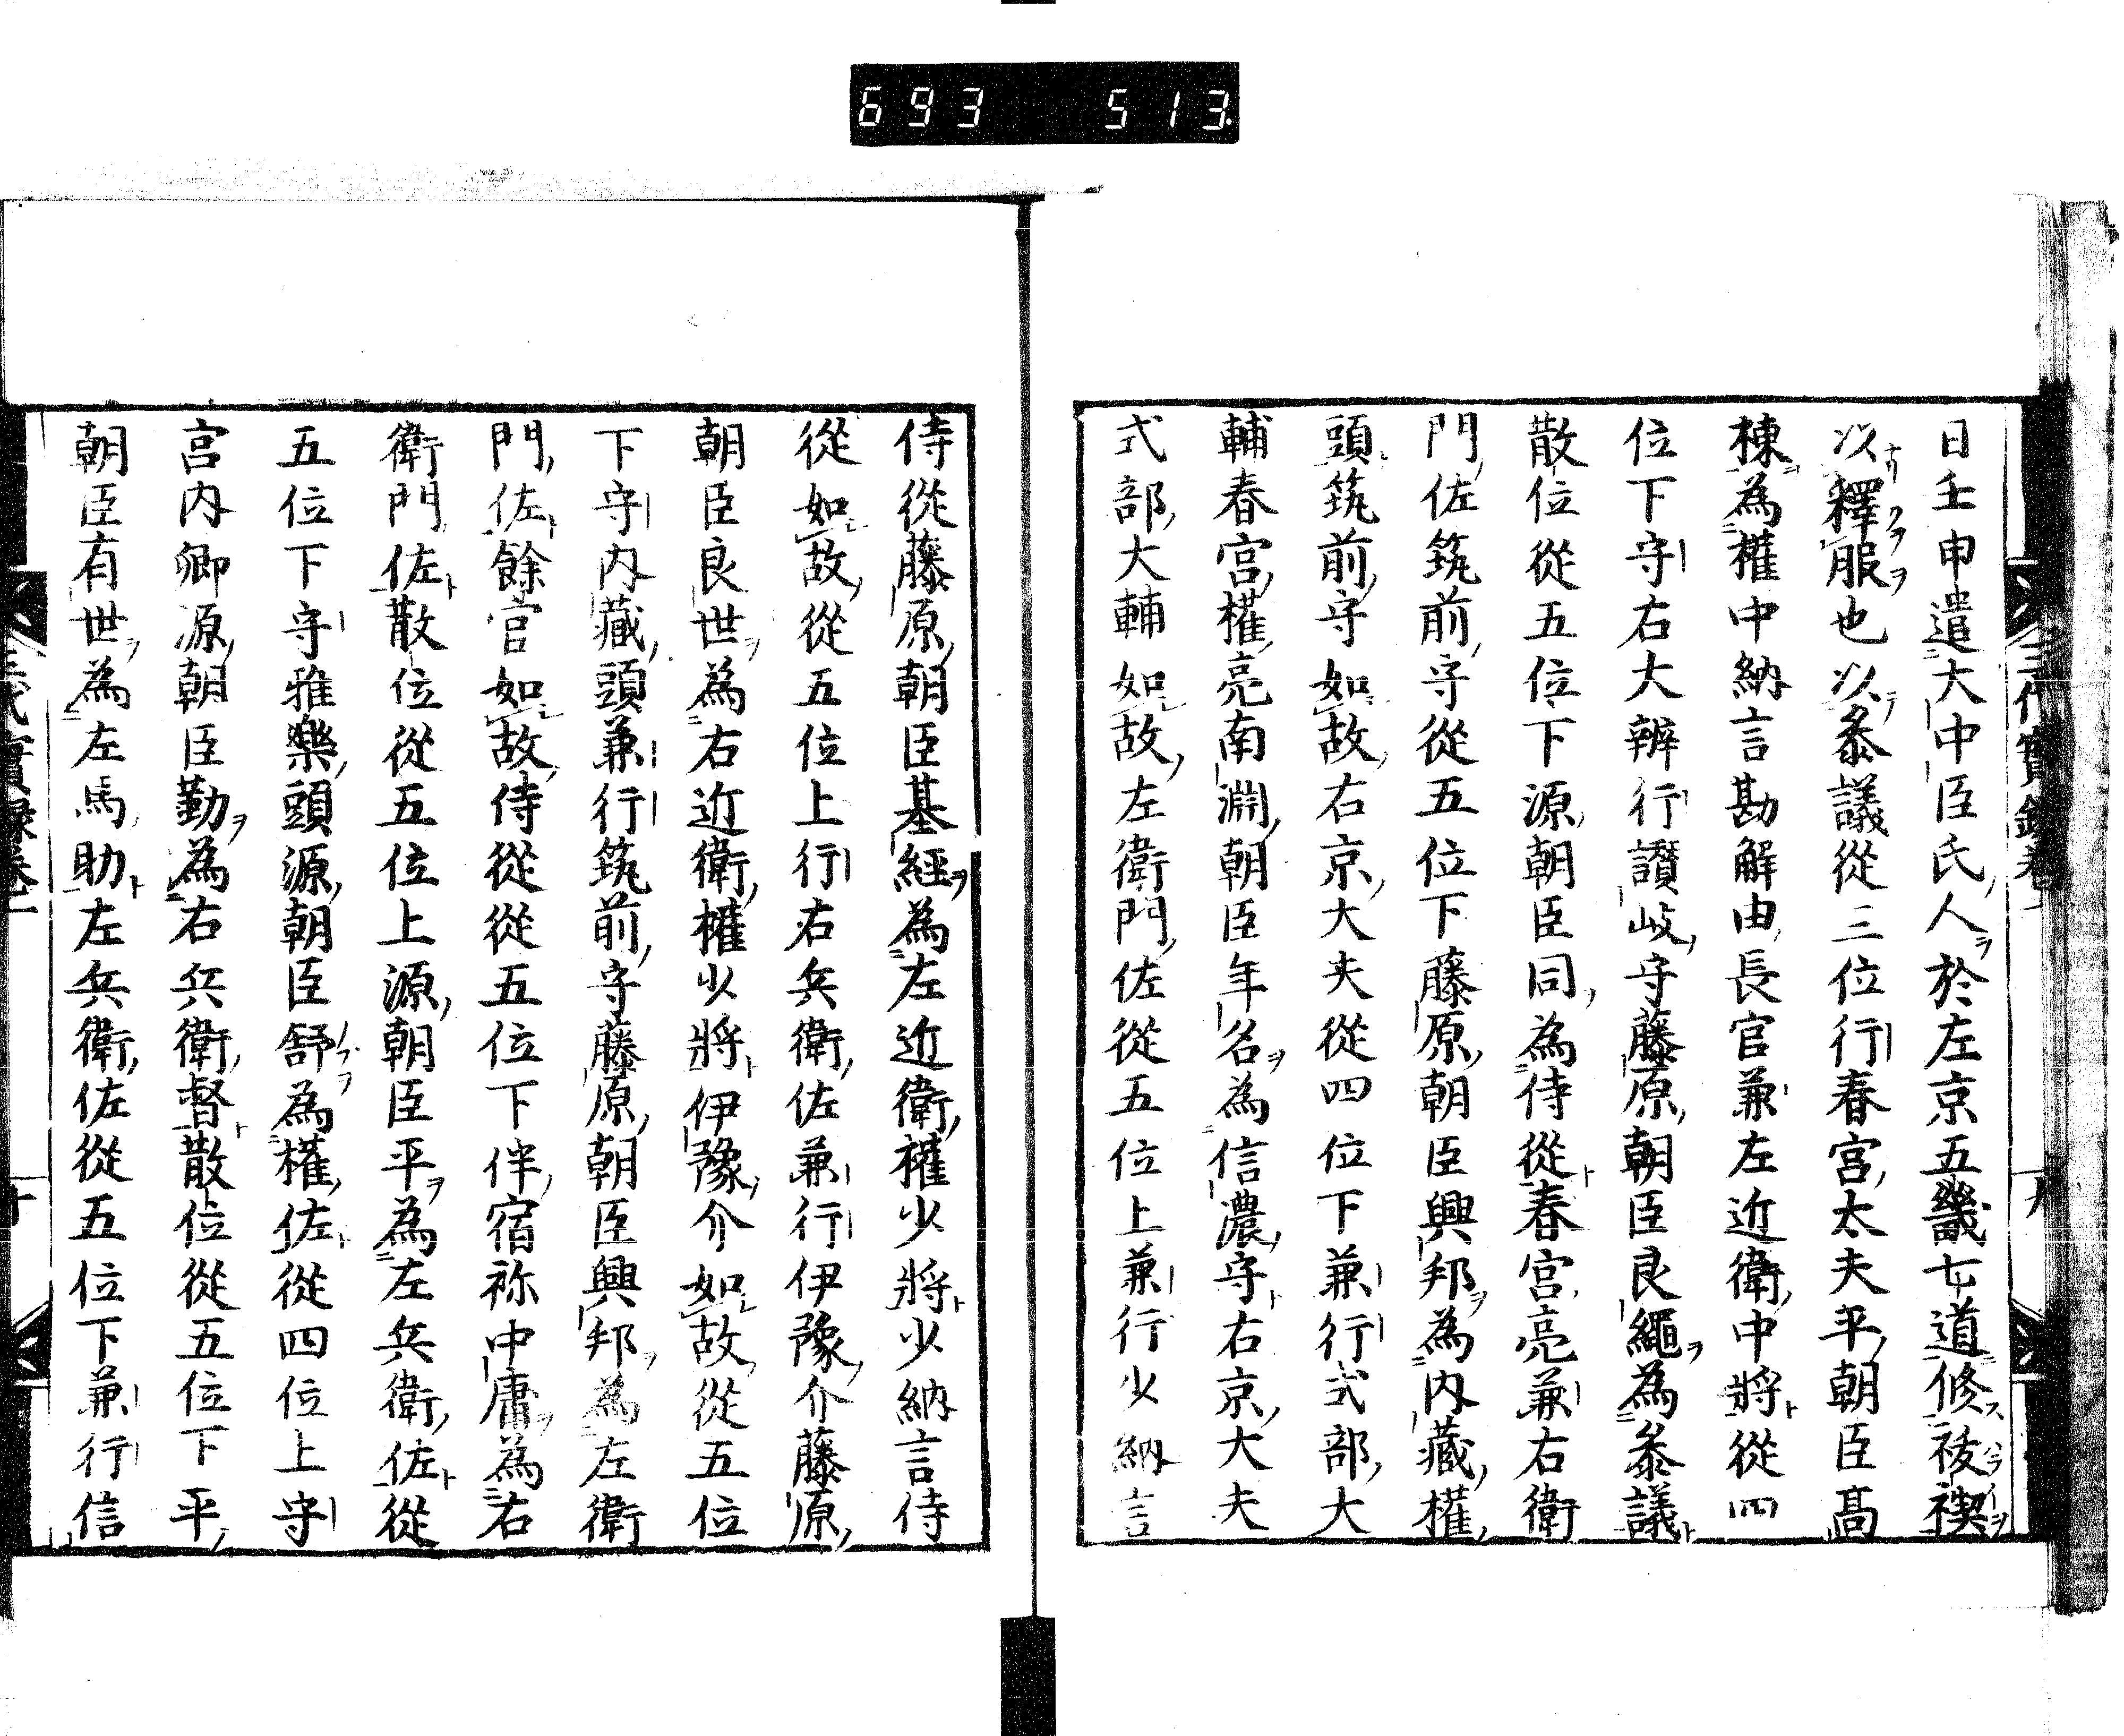 693 513
日壬申遣大中臣氏人於左京五畿七道修祓禊
以釋服也以叅議從三位行春宮太夫平朝臣高
棟為權中納言勘解由長官兼左近衛中將從四
位下守右大辨行讃岐守藤原朝臣良繩為叅議
散位從五位下源朝臣同為侍從春宮亮兼右衛
門佐筑前守從五位下藤原朝臣興邦為内藏權
頭筑前守如故右京大夫從四位下兼行式部大
輔春宮權亮南淵朝臣年名為信濃守右京大夫
式部大輔如故左衛門佐從五位上兼行少納言
侍從藤原朝臣基經為左近衛權少將少納言侍
從如故從五位上行右兵衛佐兼行伊豫介藤原
朝臣良世為右近衛權少將伊豫介如故從五位
下守内藏頭兼行筑前守藤原朝臣興邦為左衛
門佐餘官如故侍從從五位下伴宿祢中庸為右
衛門佐散位從五位上源朝臣平為左兵衛佐從
五位下守雅樂頭源朝臣舒為權佐從四位上守
宮内卿源朝臣勤為右兵衛督散位從五位下平
朝臣有世為左馬助左兵衛佐從五位下兼行信